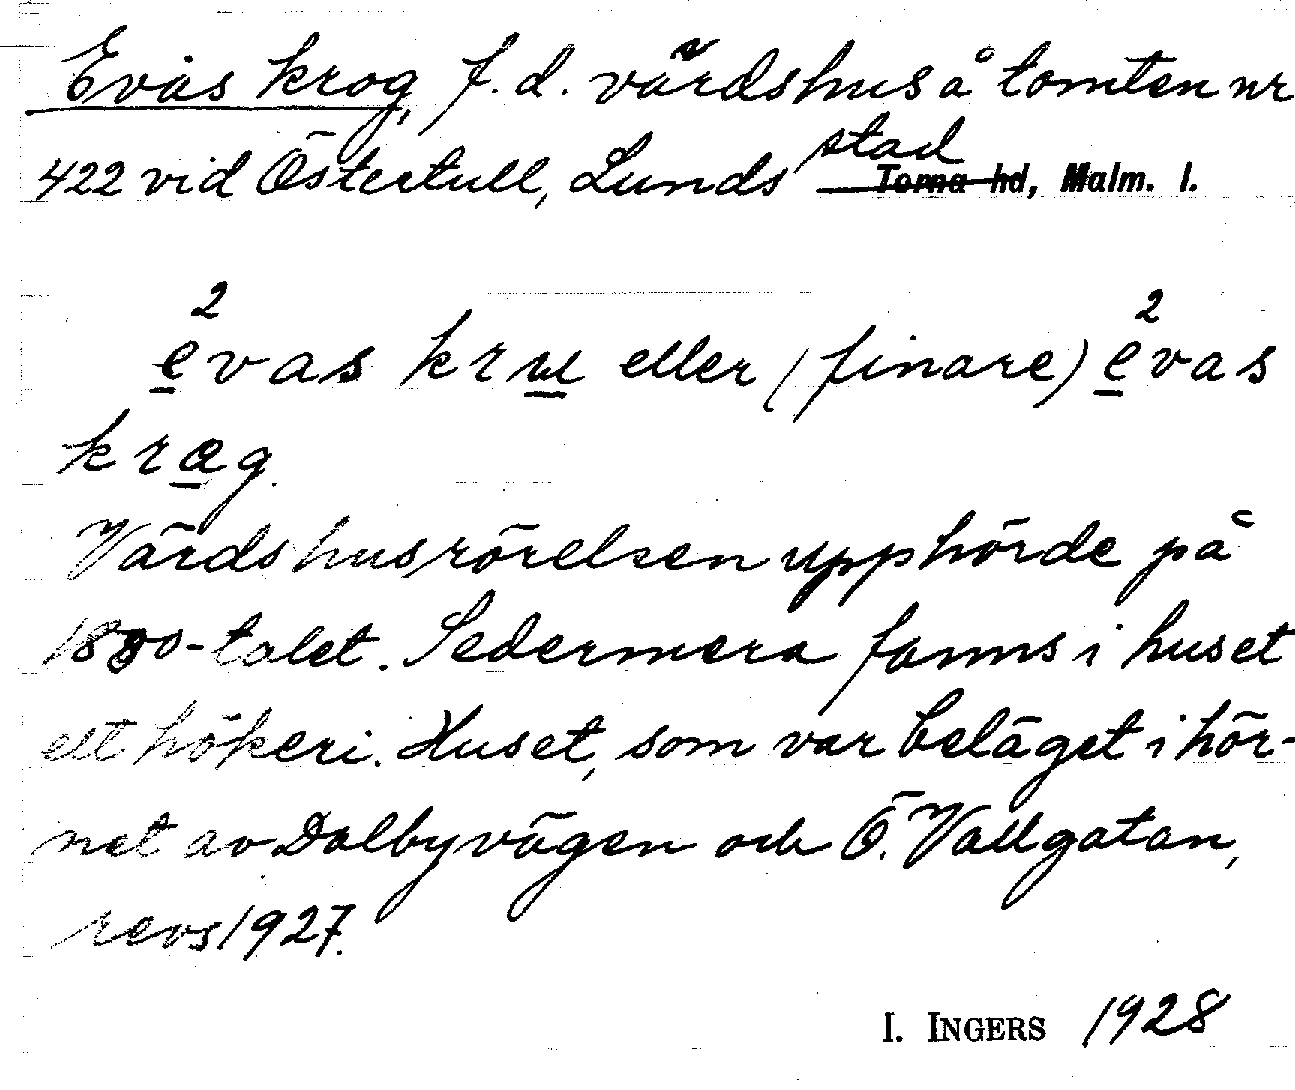 Evas krog, f.d. värdshus å tomten nr
422 vid Östertull, Lunds stad Torna hd, Malm. l.
2 2
evas kru eller (finare) evas
kræg.
Värdshusrörelsen upphörde på
1880-talet. Sedermera fanns i huset
ett hökeri. Huset, som var beläget i hör-
net av Dalbyvägen och Ö. Vallgatan,
revs 1927.
I. INGERS 1928